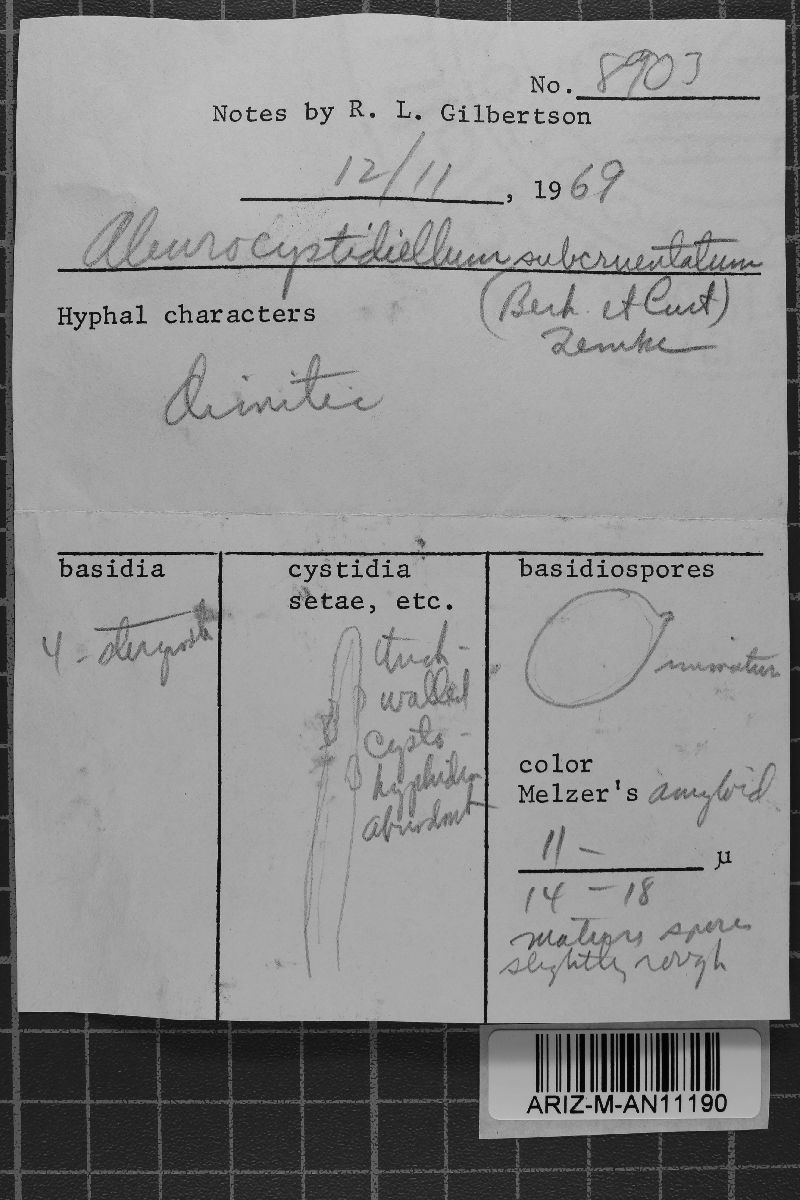 No. 8903
Notes by R. L. Gilbertson
12/11, 1969
Aleurocystidiellum subcruentatum
(Berk. et Curt)
Lemke
Hyphal characters
Dimitic
basidia
4-sterigmate
cystidia
setae, etc.
thick-
walled
cysto-
hyphidia
abundant
basidiospores
immature
color
Melzer's amyloid
11 - µ
14 - 18
mature spores
slightly rough
ARIZ-M-AN11190